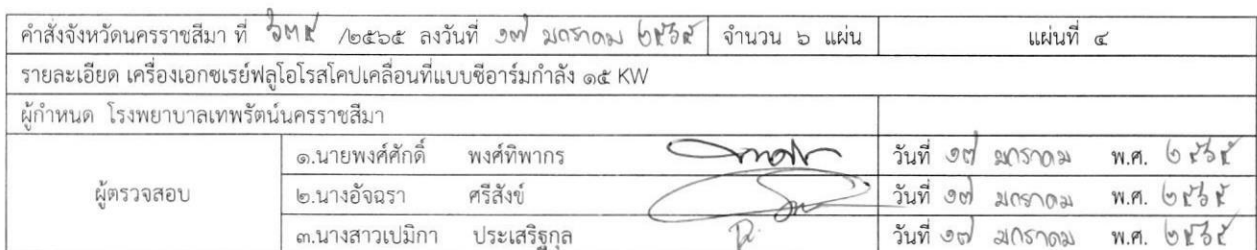 คำสั่งจังหวัดนครราชสีมา ที่ ๖๓๕ /๒๕๖๕ ลงวันที่ ๑๗ มกราคม ๒๕๖๕ จำนวน ๖ แผ่น แผ่นที่ ๔
รายละเอียด เครื่องเอกซเรย์ฟลูโอโรสโคปเคลื่อนที่แบบซีอาร์มกำลัง ๑๕ KW
ผู้กำหนด โรงพยาบาลเทพรัตน์นครราชสีมา
ผู้ตรวจสอบ
๑.นายพงศ์ศักดิ์ พงศ์ทิพากร วันที่ ๑๗ มกราคม พ.ศ. ๒๕๖๕
๒.นางอัจฉรา ศรีสังข์ วันที่ ๑๗ มกราคม พ.ศ. ๒๕๖๕
๓.นางสาวเปมิกา ประเสริฐกุล วันที่ ๑๗ มกราคม พ.ศ. ๒๕๖๕